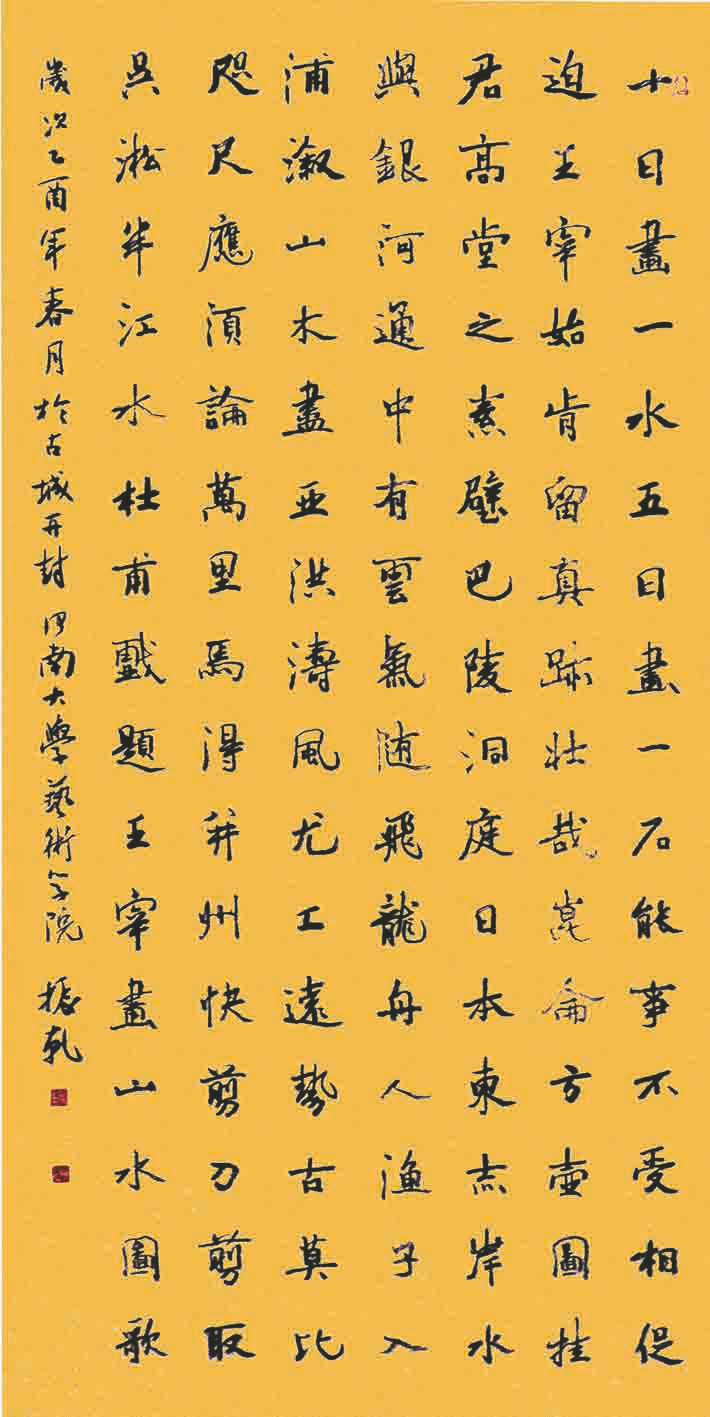 十日畫一水五日畫一石能事不受相促
迫王宰始肯留真跡壯哉崑崙方壺圖挂
君高堂之素壁巴陵洞庭日本東赤岸水
與銀河通中有雲氣随飛龍舟人漁子入
浦溆山木盡亞洪濤風尤工遠勢古莫比
咫尺應須論萬里焉得并州快剪刀剪取
吴淞半江水杜甫戲題王宰畫山水圖歌
歲次乙酉年春月於古城开封河南大學藝術学院 振乾